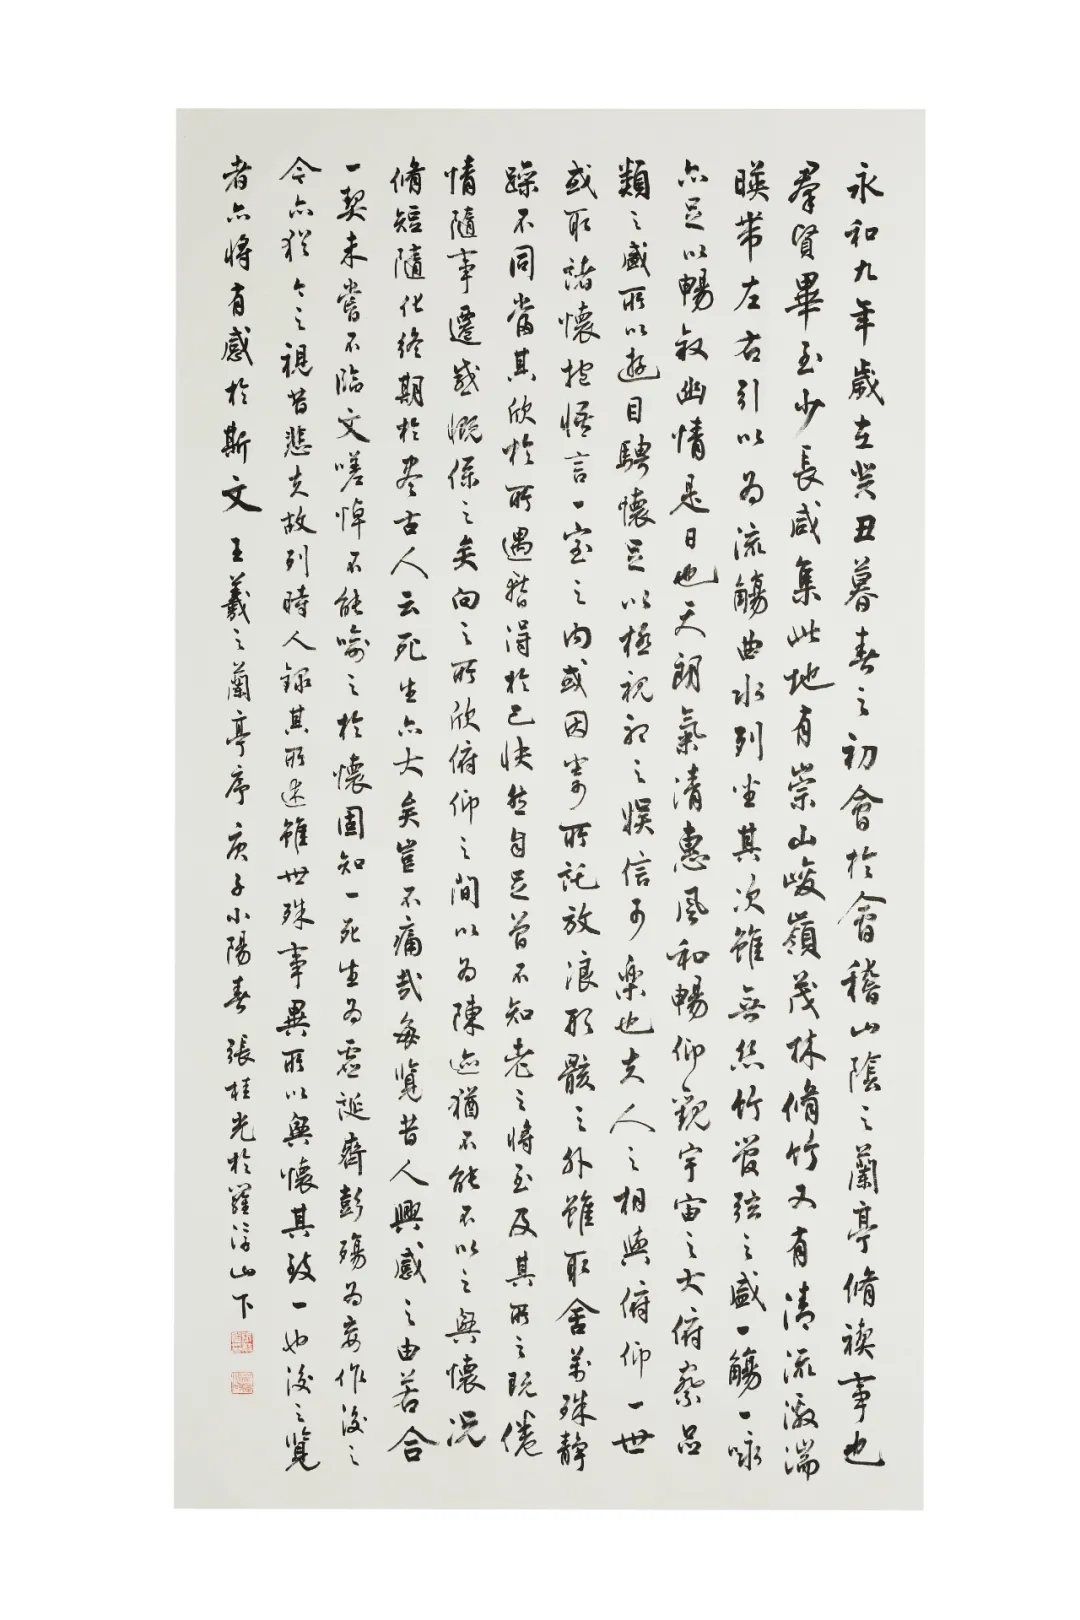 永和九年歲在癸丑暮春之初會於會稽山陰之蘭亭脩禊事也
羣賢畢至少長咸集此地有崇山峻嶺茂林脩竹又有清流激湍
暎帶左右引以為流觴曲水列坐其次雖無絲竹管弦之盛一觴一咏
亦足以暢敘幽情是日也天朗氣清惠風和暢仰觀宇宙之大俯察品
類之盛所以遊目騁懷足以極視聽之娛信可樂也夫人之相與俯仰一世
或取諸懷抱悟言一室之內或因寄所託放浪形骸之外雖取舍萬殊靜
躁不同當其欣於所遇暫得於己快然自足曾不知老之將至及其所之既倦
情隨事遷感慨係之矣向之所欣俯仰之間以為陳迹猶不能不以之興懷況
脩短隨化終期於盡古人云死生亦大矣豈不痛哉每覽昔人興感之由若合
一契未嘗不臨文嗟悼不能喻之於懷固知一死生為虛誕齊彭殤為妄作後之
今亦猶今之視昔悲夫故列時人錄其所述雖世殊事異所以興懷其致一也後之覽
者亦將有感於斯文 王羲之蘭亭序 庚子小陽春 張桂光於羅浮山下